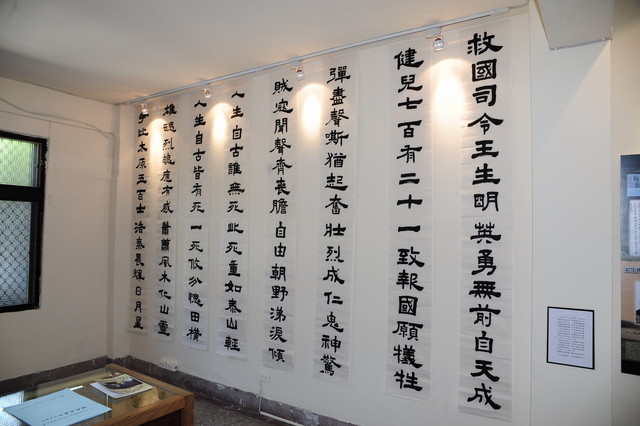 救國司令王生明英勇無前自天成
健兒七百有二十一致報國願犧牲
彈盡聲嘶猶起奮壯烈成仁鬼神驚
賊寇聞聲齊喪膽自由朝野涕淚傾
人生自古誰無死此死重如泰山輕
人生自古皆有死一死攸分田橫
雄魂烈魄應有感蕭蕭風木化山靈
比太原五百士浩氣長輝日月星